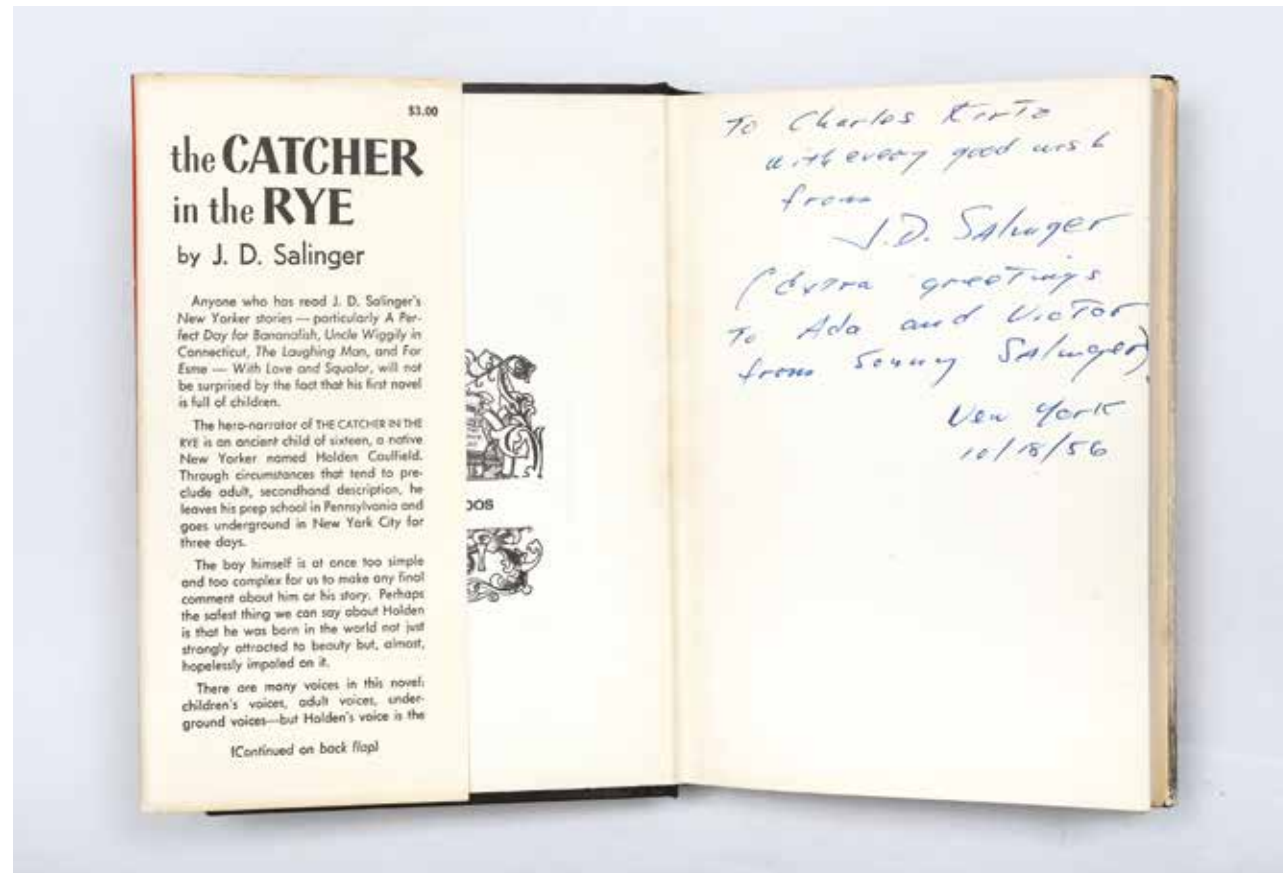 $3.00
the CATCHER
in the RYE
by J. D. Salinger
Anyone who has read J. D. Salinger's
New Yorker stories — particularly A Per-
fect Day for Bananafish, Uncle Wiggily in
Connecticut, The Laughing Man, and For
Esme — With Love and Squalor, will not
be surprised by the fact that his first novel
is full of children.
The hero-narrator of THE CATCHER IN THE
RYE is an ancient child of sixteen, a native
New Yorker named Holden Caulfield.
Through circumstances that tend to pre-
clude adult, secondhand description, he
leaves his prep school in Pennsylvania and
goes underground in New York City for
three days.
The boy himself is at once too simple
and too complex for us to make any final
comment about him or his story. Perhaps
the safest thing we can say about Holden
is that he was born in the world not just
strongly attracted to beauty but, almost,
hopelessly impaled on it.
There are many voices in this novel:
children's voices, adult voices, under-
ground voices—but Holden's voice is the
(Continued on back flap)
To Charles
with every good wish
from
J.D. Salinger
(extra greetings
To Ada and Victor
from Sonny Salinger)
New York
10/18/56